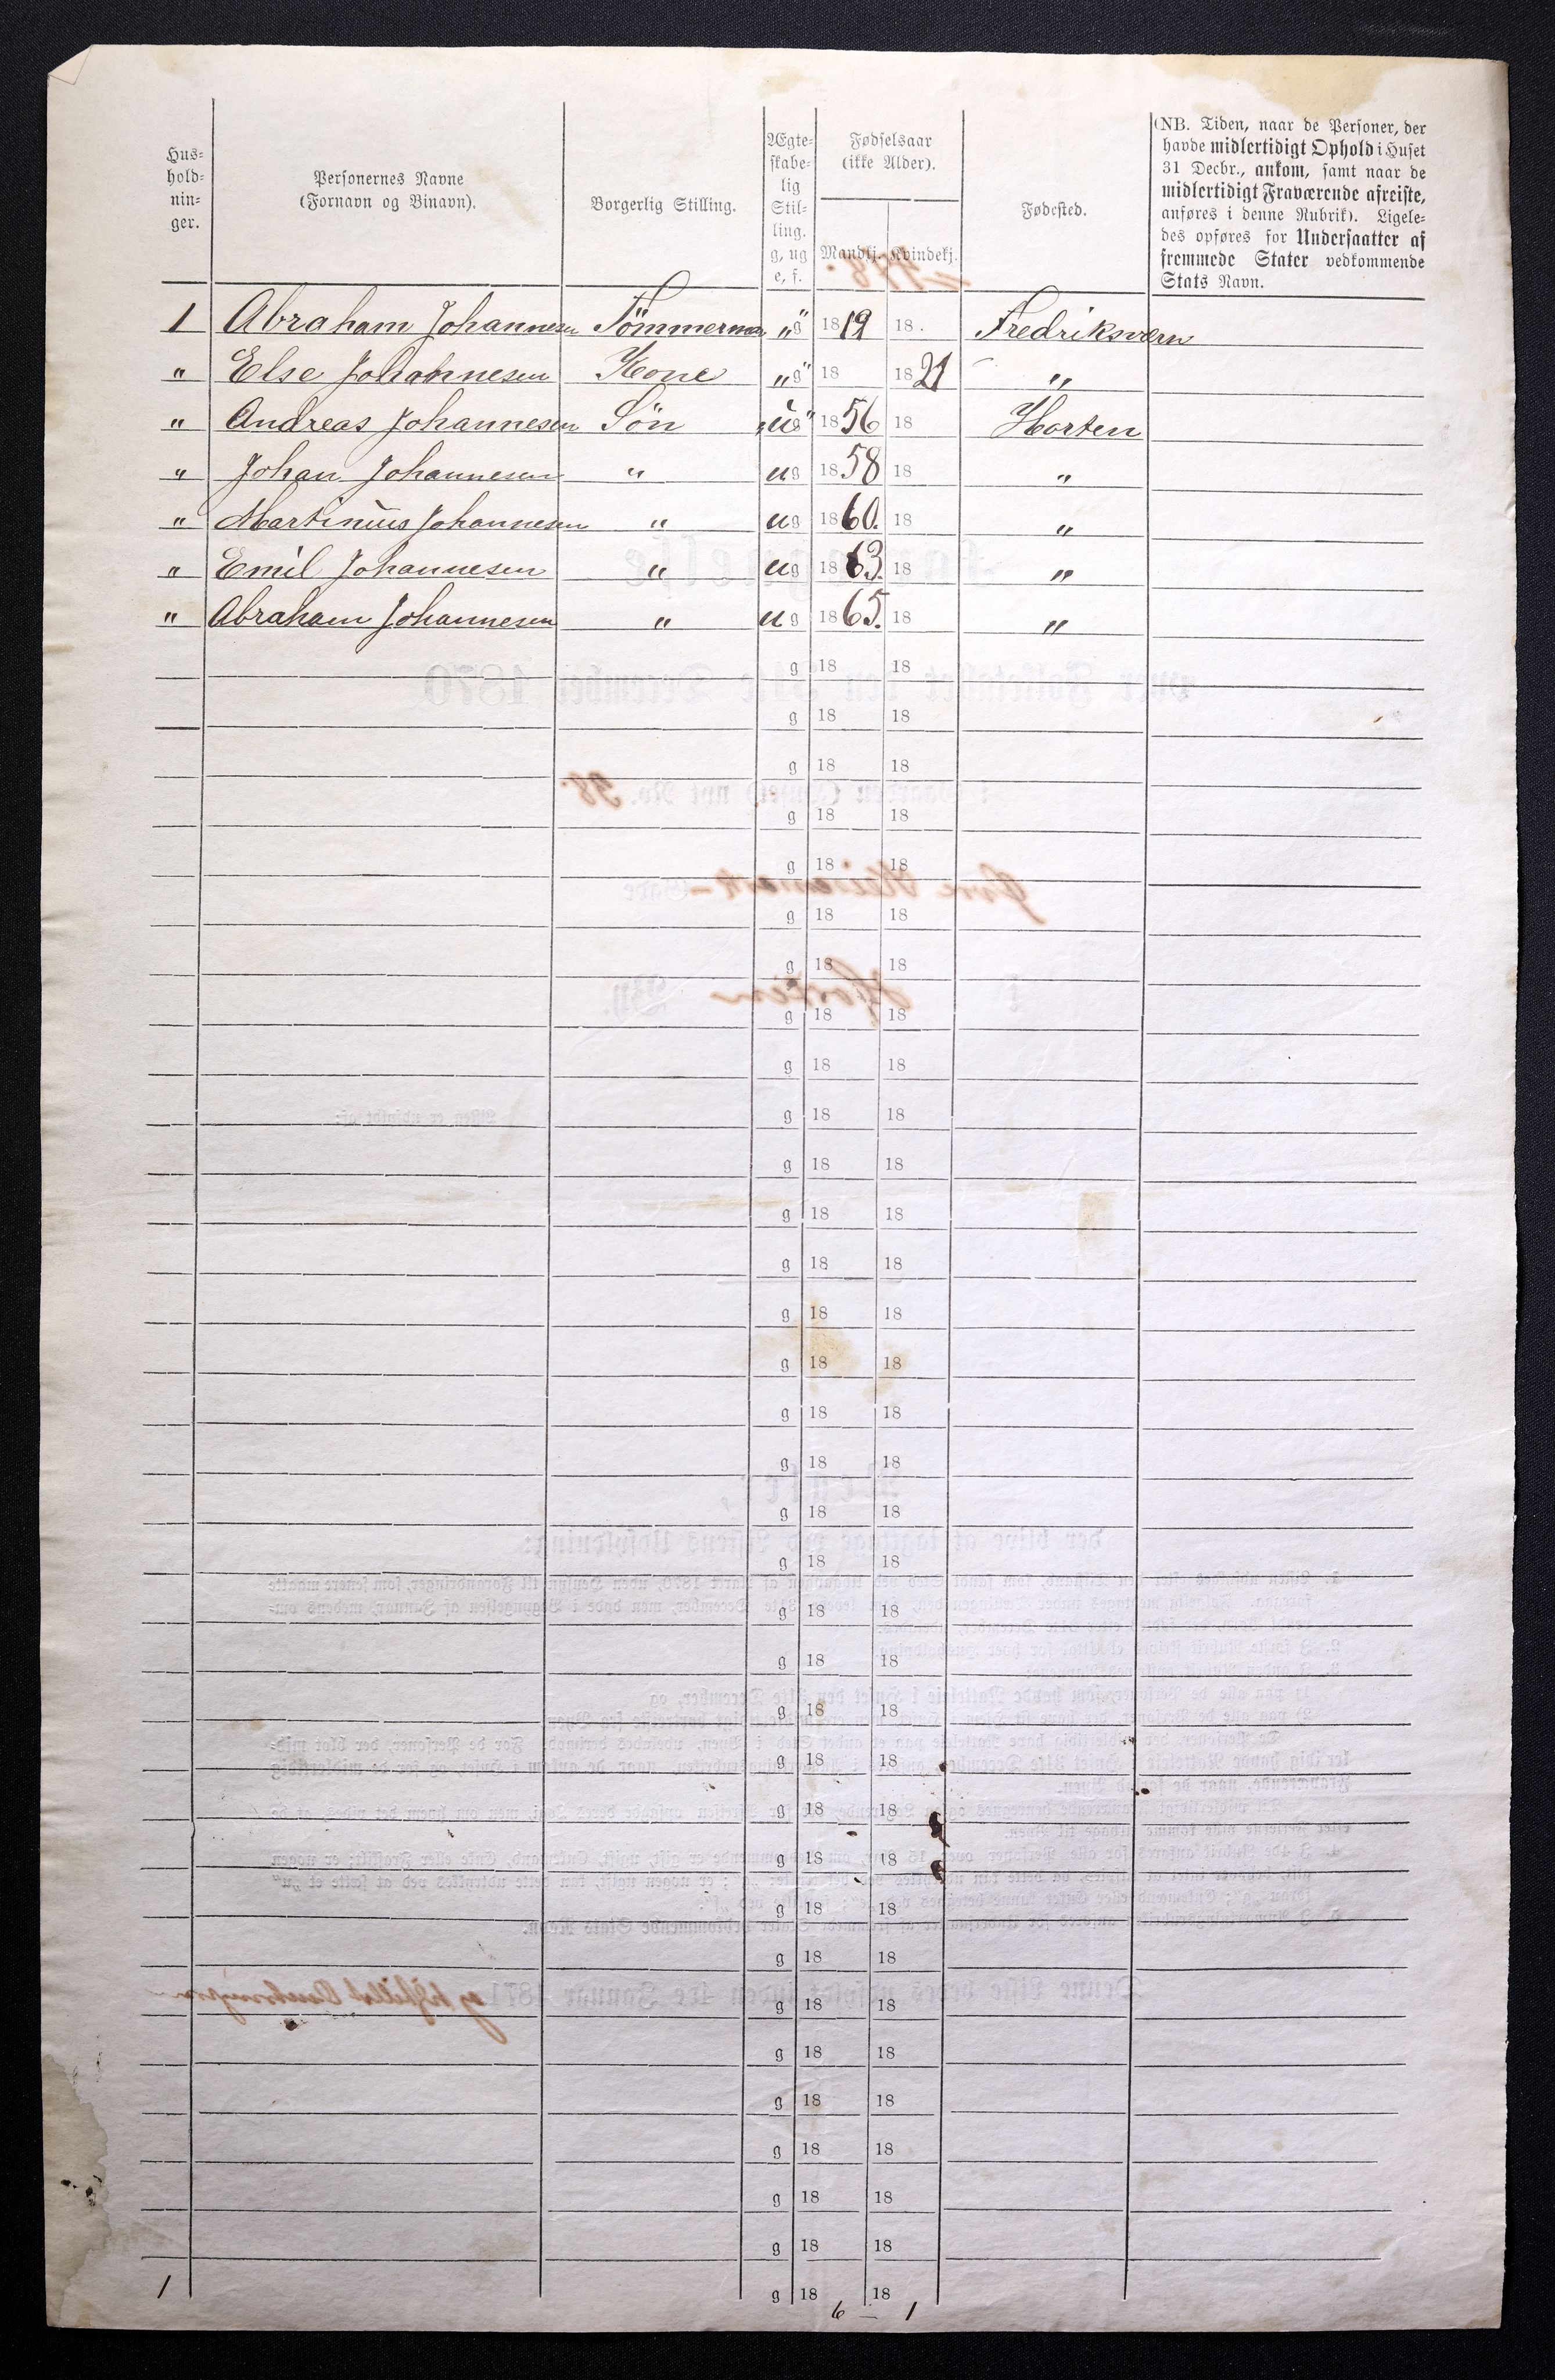 Hus-
hold-
nin-
ger.
Personernes Navne
(Fornavn og Binavn).
Borgerlig Stilling.
Ægte-
skabe-
lig
Stil-
ling.
g, ug
e, f.
Fødselsaar
(ikke Alder).
Mandkj. Kvindekj.
Fødested.
(NB. Tiden, naar de Personer, der
havde midlertidigt Ophold i Huset
31 Decbr., ankom, samt naar de
midlertidigt Fraværende afreiste,
anføres i denne Rubrik). Ligele-
des opføres for Undersaatter af
fremmede Stater vedkommende
Stats Navn.
1 Abraham Johannesen Tömmerman "g 1819 18 Fredriksværn
" Else Johannesen Kone "g" 18 1821 "
" Andreas Johannesen Sön "ug" 1856 18 Horten
" Johan Johannesen " ug 1858 18 "
" Martinus Johannesen " ug 1860. 18 "
" Emil Johannesen " ug 1863. 18 "
" Abraham Johannesen " ug 1865. 18 "
g 18 18
g 18 18
g 18 18
g 18 18
g 18 18
g 18 18
g 18 18
g 18 18
g 18 18
g 18 18
g 18 18
g 18 18
g 18 18
g 18 18
g 18 18
g 18 18
g 18 18
g 18 18
g 18 18
g 18 18
g 18 18
g 18 18
g 18 18
g 18 18
g 18 18
g 18 18
g 18 18
g 18 18
g 18 18
g 18 18
g 18 18
g 18 18
g 18 18
g 18 18
1 6 — 1